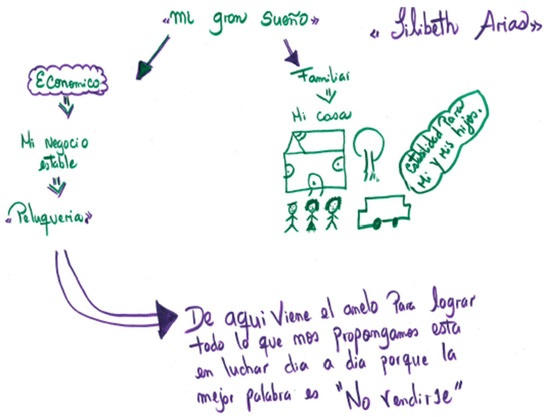 «Mi gran Sueño»
« Lilibeth Arias»
Economico
Familiar
Mi Negocio
estable
«Peluqueria»
Mi casa
Estabilidad Para
Mi y Mis hijos.
De aqui Viene el anelo Para lograr
todo lo que nos propongamos esta
en luchar dia a dia porque la
mejor palabra es "No rendirse"